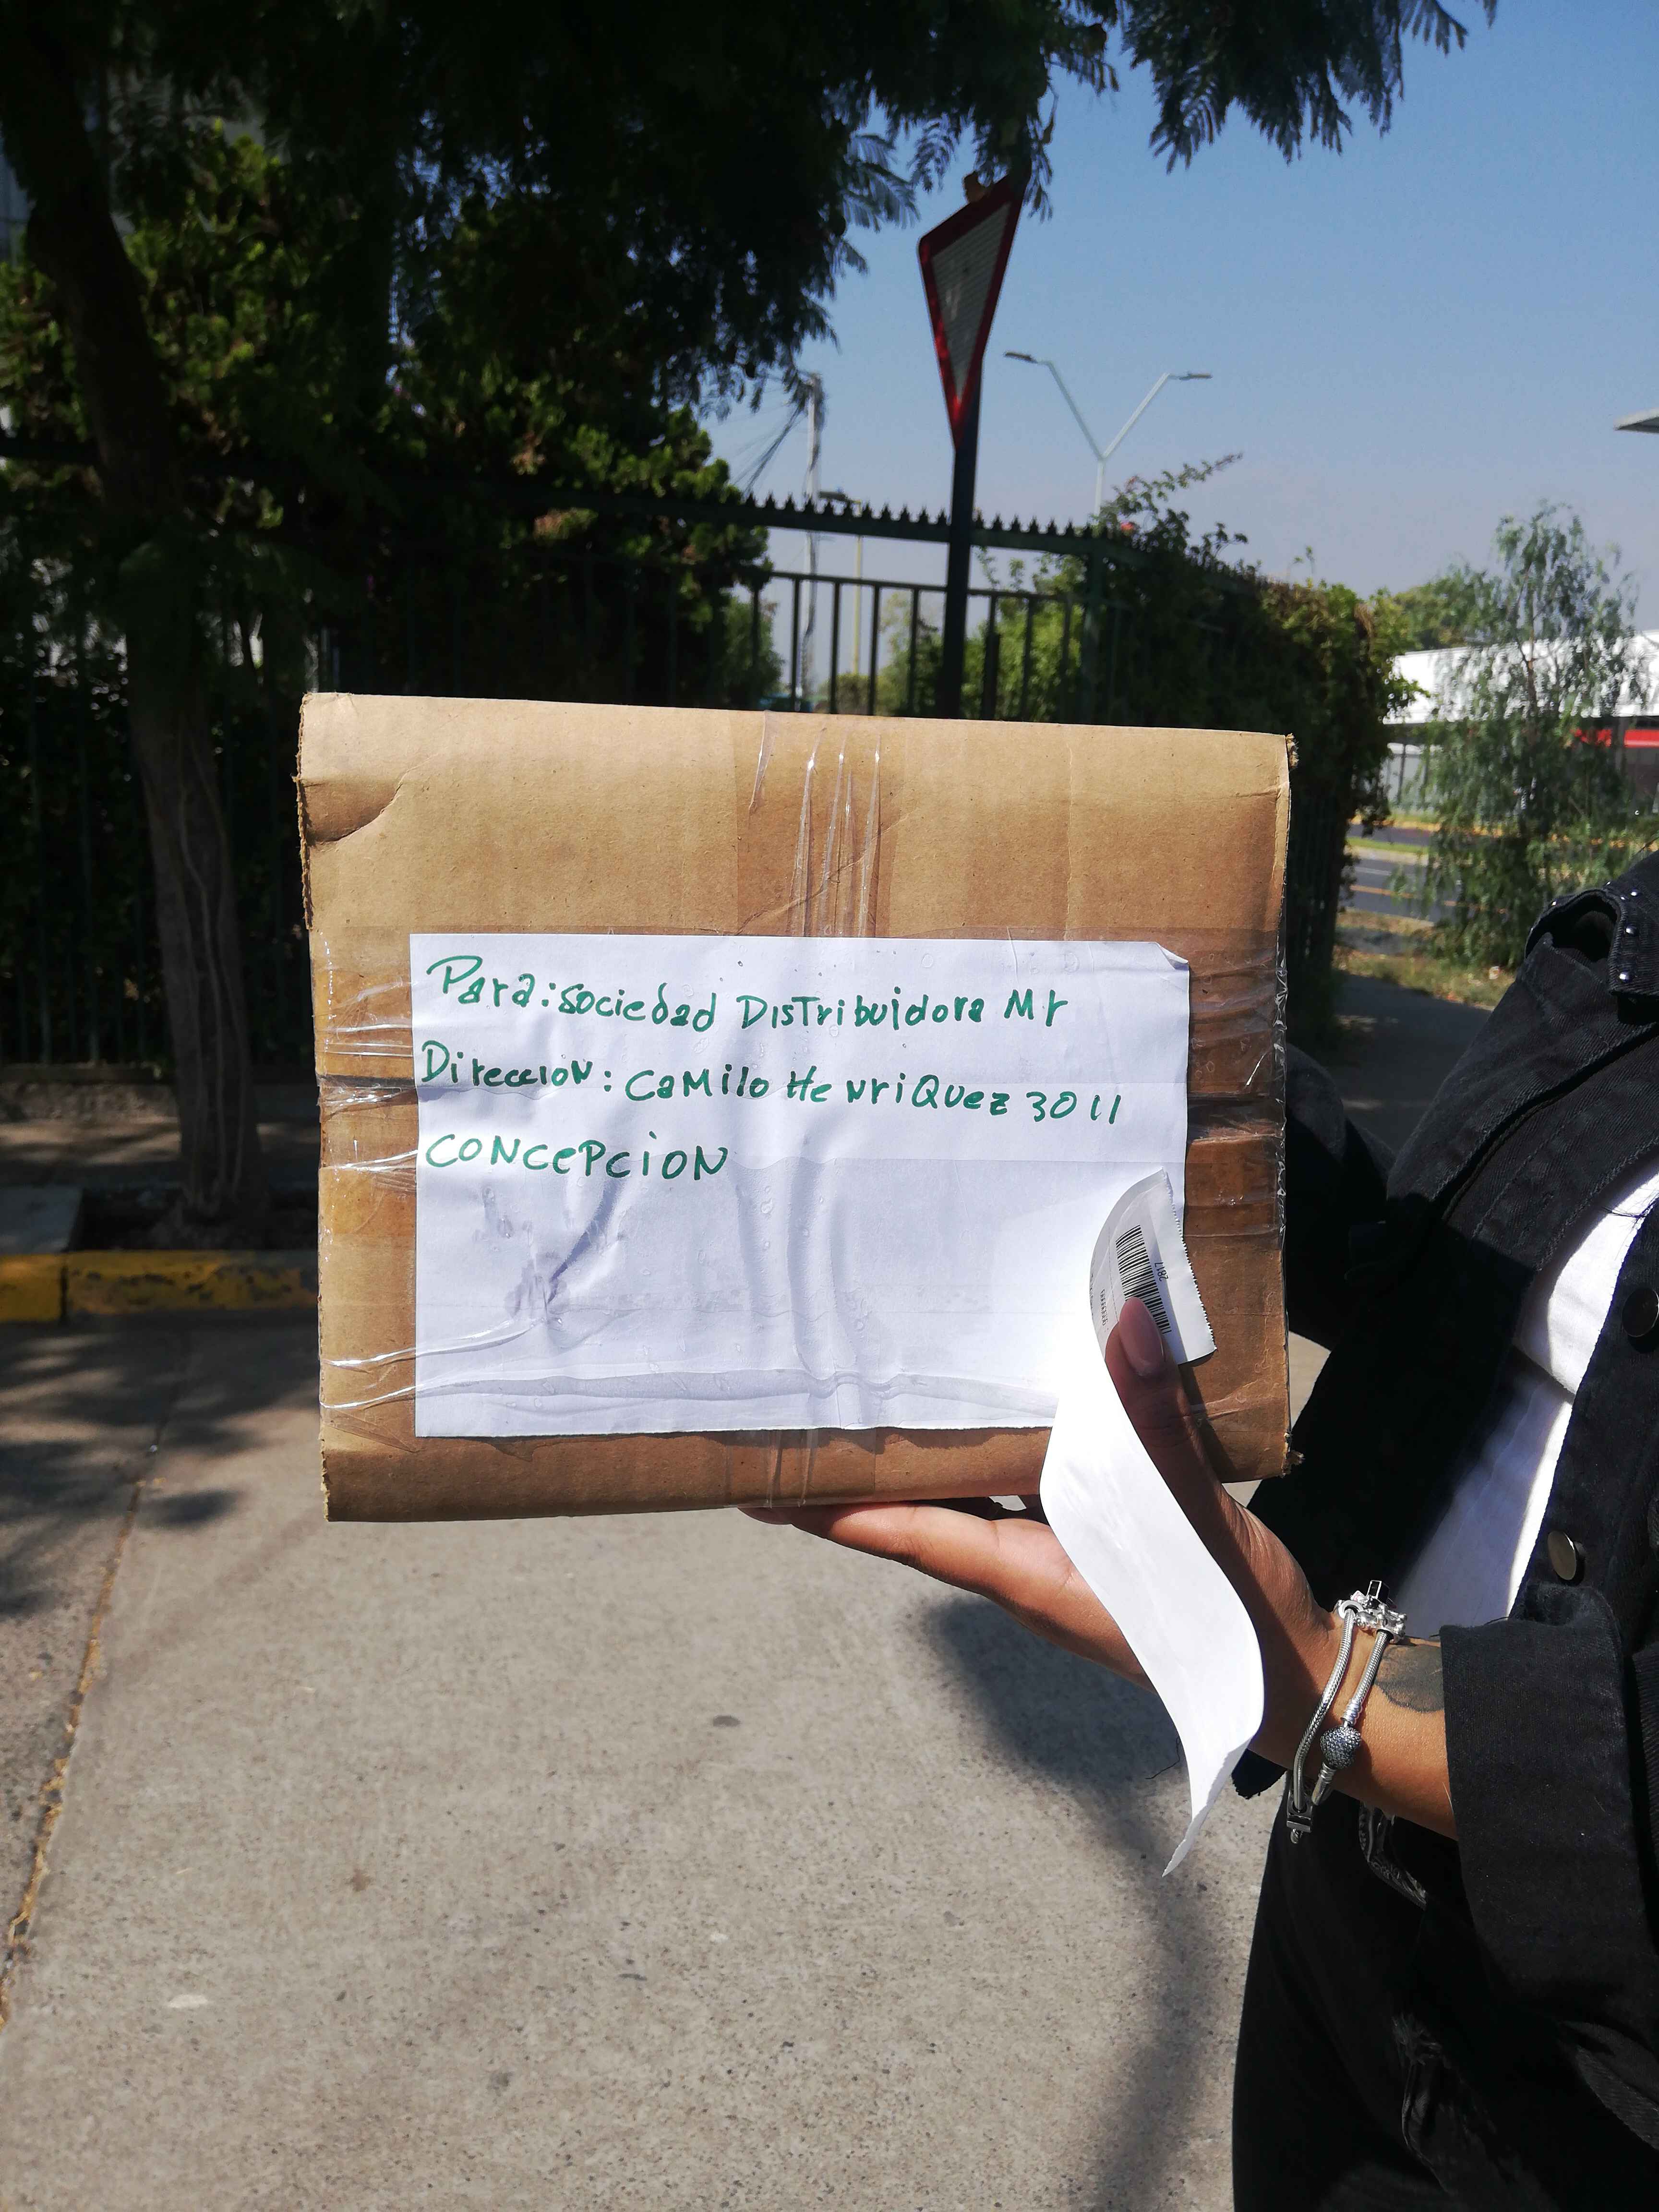 Para: Sociedad Distribuidora Mr
Direccion: Camilo Henriquez 3011
Concepcion
2817